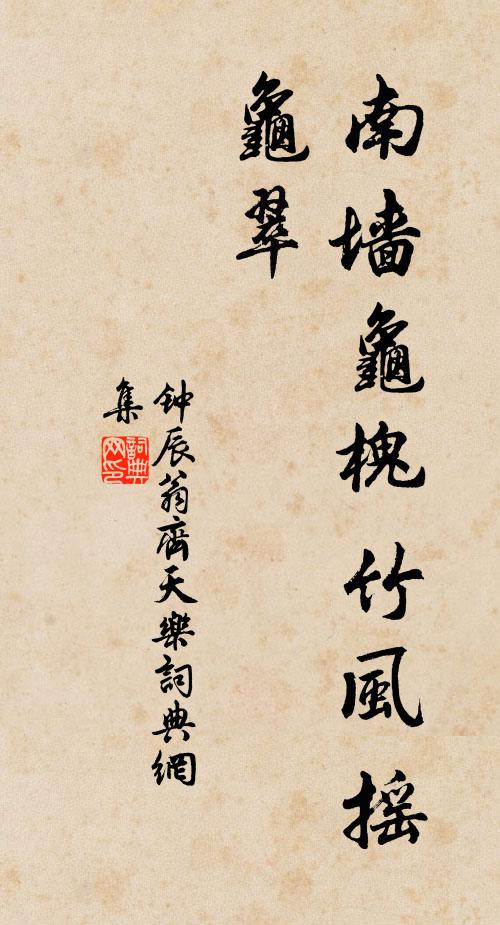 南墙龜槐竹風摇
龜翠
钟辰翁齊天樂詞典網
集
詞典网印